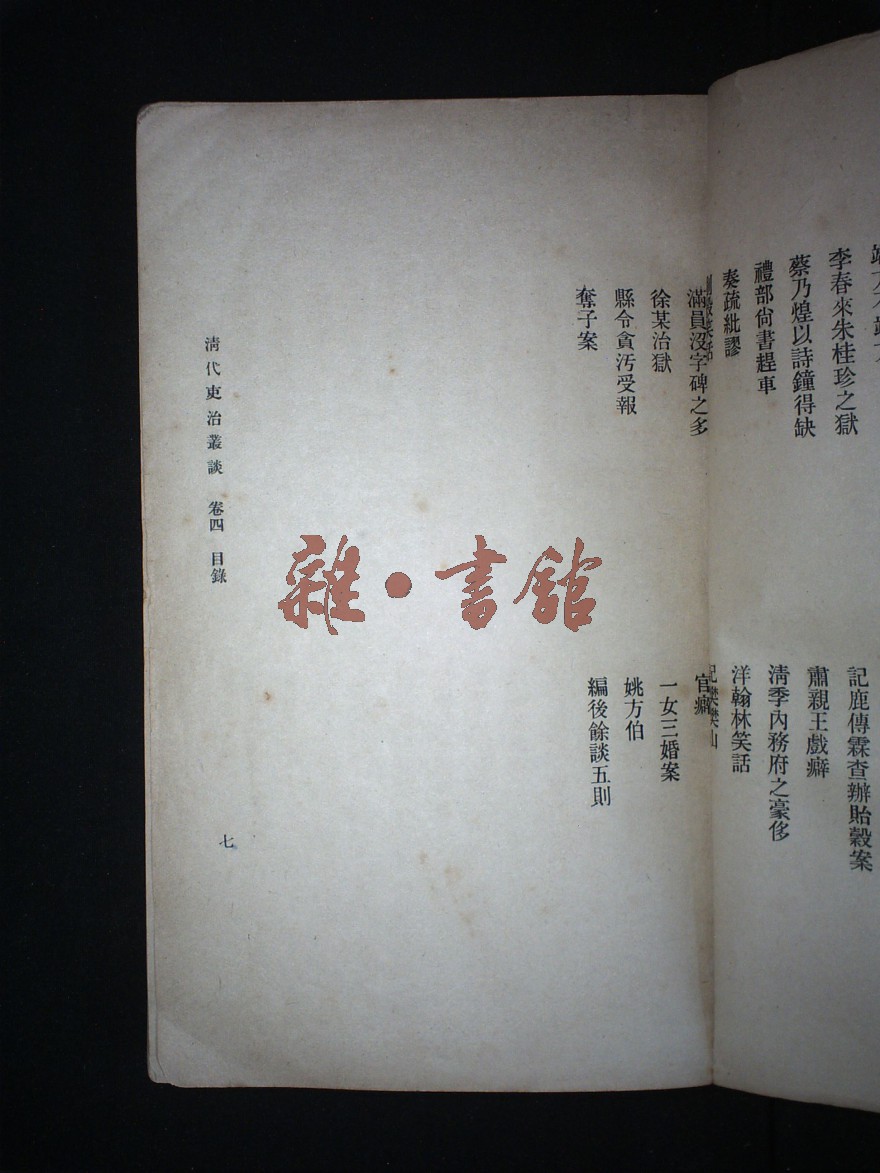 李春來朱桂珍之獄
記鹿傳霖查辦貽穀案
蔡乃煌以詩鐘得缺
肅親王戲癖
禮部尙書趕車
清季內務府之豪侈
奏疏紕謬
洋翰林笑話
滿員沒字碑之多
官癖
徐某治獄
一女三婚案
縣令貪汚受報
姚方伯
奪子案
編後餘談五則
清代吏治叢談 卷四 目錄
七
雜•書館